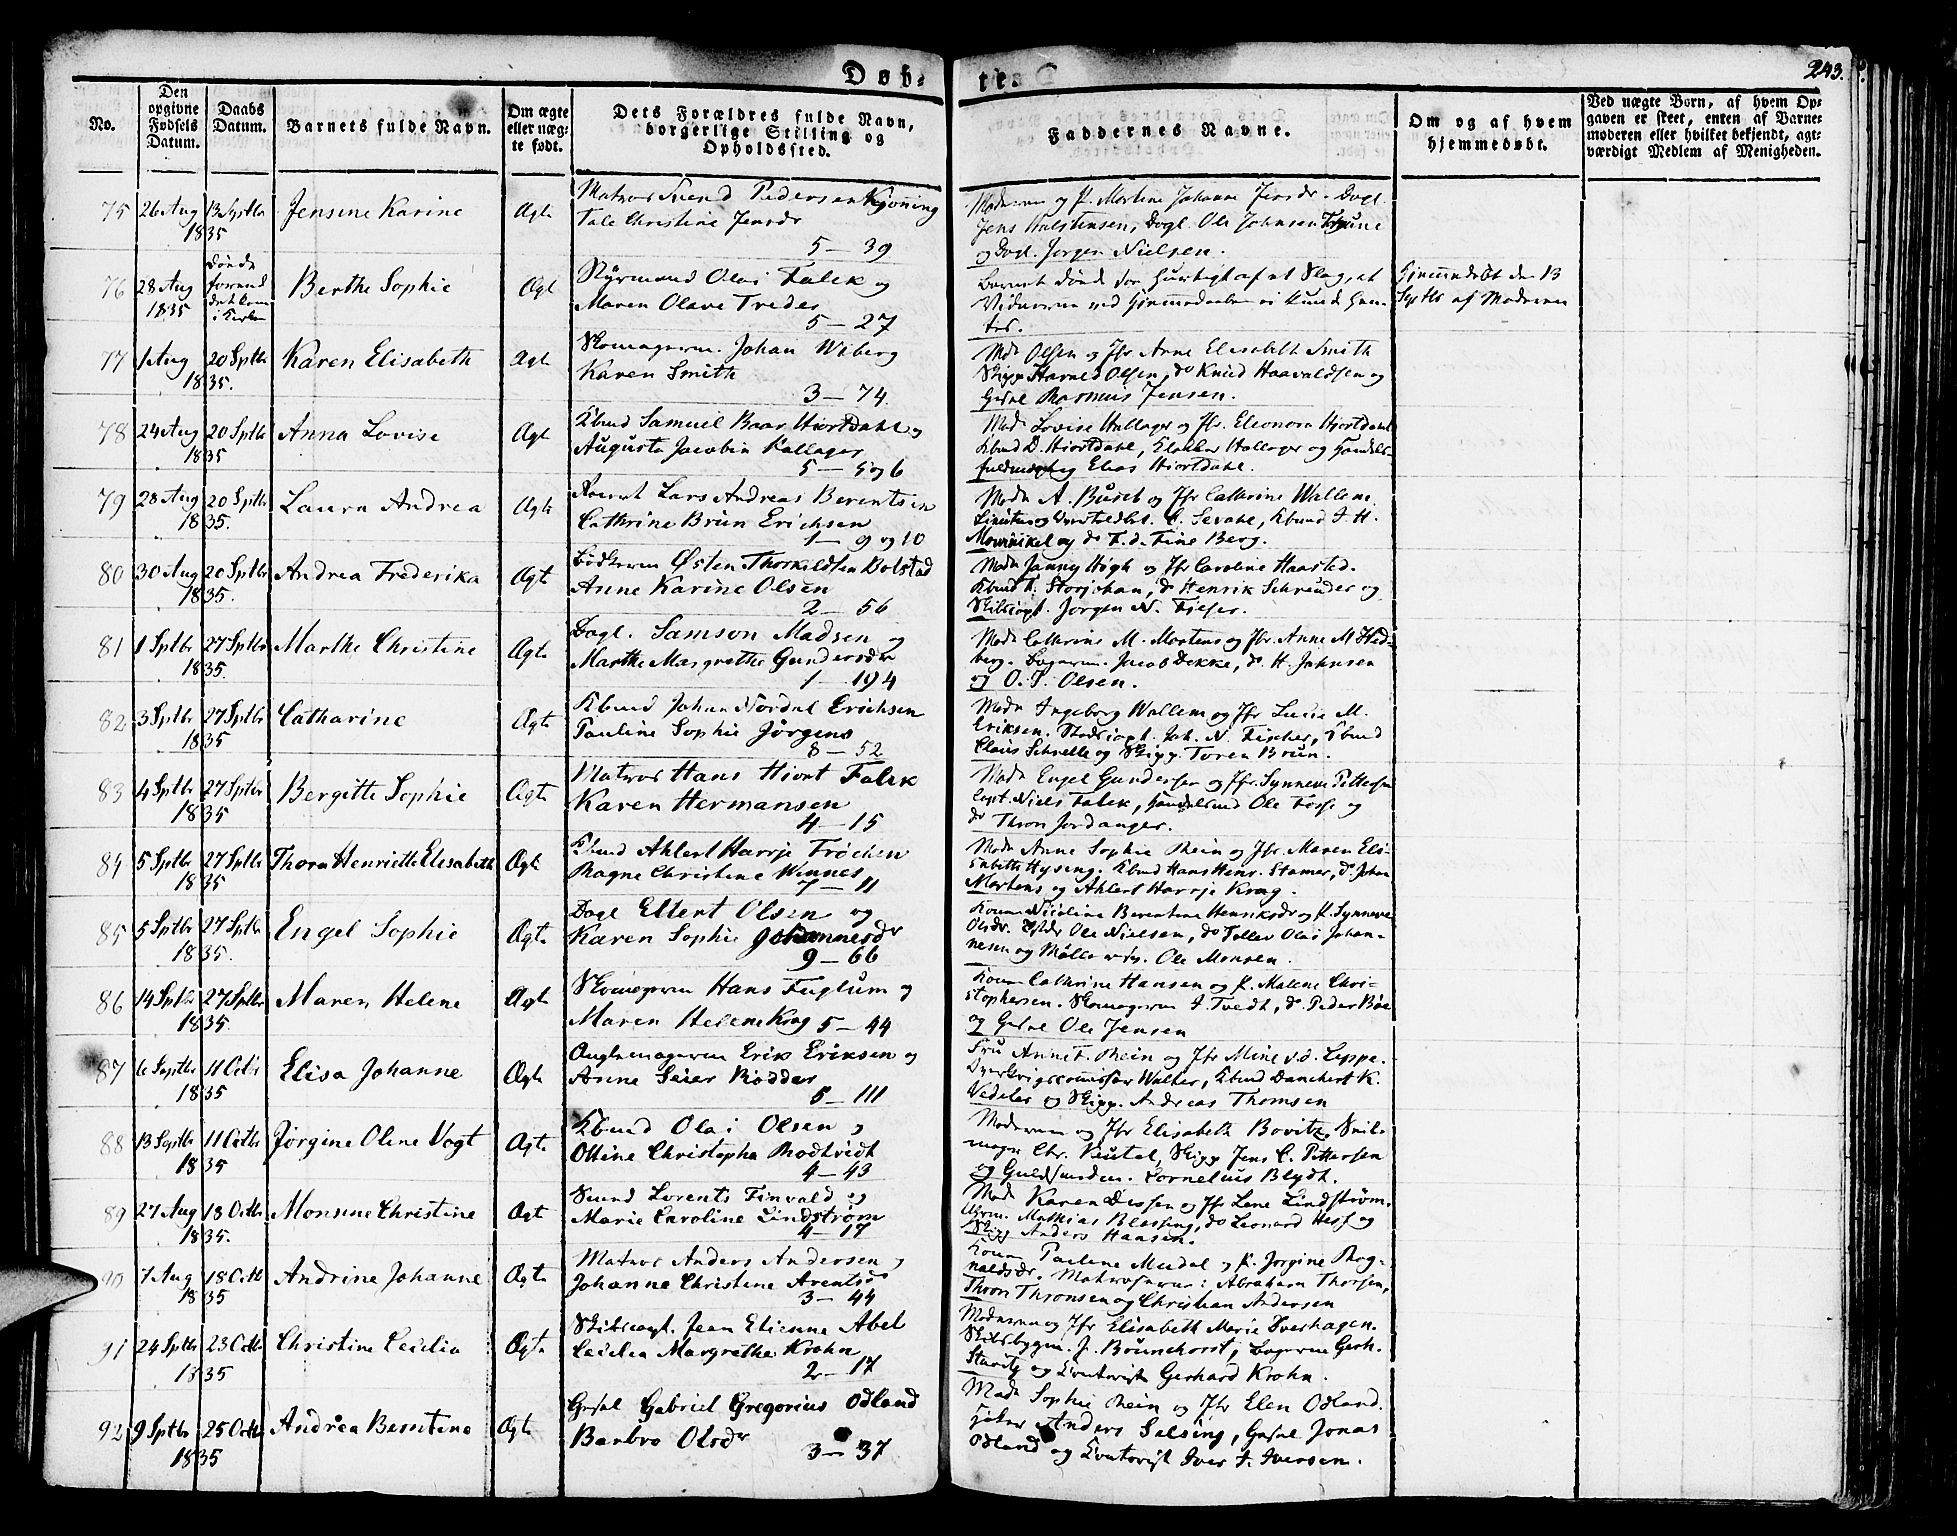 Døb-
tes
243.
No.
Den opgivne Fødsels Datum.
Daabs Datum.
Barnets fulde Navn.
Om ægte eller uæg- te født.
Dets Forældres fulde Navn, borgerlige Stilling og Opholdssted.
Faddernes Navne.
Om og af hvem hjemmedøbt.
Ved uægte Børn, af hvem Op- gaven er skeet, enten af Barne- moderen eller hvilket bekjendt, agt- værdigt Medlem af Menigheden.
75 26 Aug 13 Septbr 1835 Jensine Karine Ægte
Matros Svend Pedersen
Tale Christine Jensdr
5 — 39
Moderen og P. Martine Johanne Jensdr. Dagl.
Jens Halstensen, Dagl. Ole Johnsen
og Dagl. Jørgen Nielsen.
76 28 Aug 1835 Døde forend det kom i Kirken Berthe Sophie Ægt
Styrmand Olai Falck og
Maren Olave Treder
5 — 27
Barnet døde for hurtigt af et Slag, at
Vidnerne ved Hjemmedaaben ei kunde hen-
tes.
Hjemmedøbt den 13
Septbr af Moderen
77 1 Aug 20 Septbr 1835. Karen Elisabeth Ægt
Skomagerm. Johan Wiberg
Karen Smith
3 — 74
Mad. Olsen og Jfr Anne Elisabeth Smith
Skipp Harald Olsen, do Knud Haavaldsen og
Gesel Rasmus Jensen.
78 24 Aug 20 Septbr 1835 Anna Lovise Ægt
Kbmd Samuel Baar Hiortdahl og
Augusta Jacobin Hallager
5 — 5 og 6
Mad. Lovise Hallager og Jfr. Eleonora Hjortdahl
Kbmd D. Hiortdahl, Klokker Hallager og Handels-
fuldmægtig Elias Hiortdahl.
79 28 Aug 20 Septbr 1835. Laura Andrea Ægte
Lars Andreas Berentsen
Cathrine Brun Erichsen
1 — 9 og 10
Mad. A. Buset og Jfr Cathrine Wallem
C. Sevahl, Kbmd J. H.
Mowinckel og do F. d. Fine Berg.
80 30 Aug 20 Septbr 1835. Andrea Frederika Ægt
Bødkerm Østen Thorkildsen Dolstad
Anne Karine Olsen
2 — 56
Mad. Janny Høgh og Jfr Caroline Haasted.
Kbmd T. Storjohan, do Henrik Schrøuder og
Skibscapt. Jørgen N. Fieser.
81 1 Septbr 27 Septbr 1835. Marthe Christine Ægte
Dagl. Samson Madsen og
Marthe Margrethe Gundersdr
1 — 194
Mad. Cathrine M. Martens og Jfr. Anne M. Hed-
berg. Bagerm. Jacob Dekke, do H. Johnsen
og O. J. Olsen.
82 3 Septbr 27 Septbr 1835 Catharine Ægte
Kbmd Johan Nordal Erichsen
Pauline Sophie Jørgens
8 — 52
Mad. Ingeborg Wallem og Jfr Lucie M.
Eriksen. Skibscapt. Joh. N. Fischer, Kbmd
Claus Schnelle og Skipp. Toren Brun.
83 4 Septbr 27 Septbr 1835 Bergitte Sophie Ægte
Matros Hans Hiort Falck
Karen Hermansen
4 — 15
Mad. Engel Gundersen og Jfr. Synneve Pettersen
Capt. Niels Falck, Handelsmd Ole Fosse og
do Thron Jordanger.
84 5 Septbr 27 Septbr 1835 Thora Henriette Elisabeth Ægte
Kbmd Ahlert Harrje Frøchen
Magne Christine Winnes
7 — 11
Mad. Anne Sophie Rein og Jfr. Maren Eli-
sabeth Hysing. Kbmd Hans Henr. Stamer, do Johan
Martens og Ahlert Harrje Krag.
85 5 Septbr 27 Septbr 1835. Engel Sophie Ægte
Dagl Ellert Olsen og
Karen Sophie Johannesdr
9 — 66
Kone Nicoline Berentine Henriksdr og P. Synneve
Olsdr. Ole Nielsen, do Tollev Olai Johan-
nesen og Møllersv. Ole Monsen.
86 14 Septbr 27 Septbr 1835. Maren Helene Ægte
Skomagerm Hans Fuglum og
Maren Helene Krag 5 — 44
Kone Cathrine Hansen og P. Malene Chri-
stophersen. Skomagerm J. Tvedt, do Peder Bøe
og Gesel Ole Jensen
87 6 Septbr 11 Octbr 1835 Elisa Johanne Ægte
Erik Eriksen og
Anne Seier Rødder
5 — 111
Fru Anne F. Rein og Jfr Mine v.d. Lippe.
Walter, Kbmd Danchert K.
Vedeler og Skipp. Andreas Thomsen
88 13 Septbr 11 Octbr 1835 Jørgine Oline Vogt Ægte
Kbmd Olai Olsen og
Olline Christopha Rodtvidt
4 — 43
Moderen og Jfr Elisabeth Bovitz. Seil-
mager Chr. Keutel, Skipp Jens C. Pettersen
og Guldsmedsv. Cornelius Blydt.
89 27 Aug 18 Octbr 1835. Monsine Christine Ægt
Lorents Finvald og
Marie Caroline Lindstrøm
4 — 17
Mad. Karen Dessen og Jfr Lene Lindstrøm.
Mathias Blessing, do Leonard Hess og
Skipp Anders Hansen.
90 7 Aug 18 Octb 1835 Andrine Johanne Ægte
Matros Anders Andersen og
Johanne Christine Arentsdr
3 — 44
Kone Pauline Mudal og P. Jorgine Rog-
naldsdr. Matroserne: Abraham Thorsen,
Thron Thronsen og Christian Andersen
91 24 Septbr 23 Octbr 1835 Christine Cecilia Ægte
Skibscapt. Jean Etienne Abel
Cecilia Margrethe Krohn
2 — 17
Moderen og Jfr Elisabeth Marie Overhagen.
Skibsbygm. J. Brunchorst, Bagerm Gerh.
Sturtz og Contorist Gerhard Krohn.
92 9 Septbr 25 Octbr 1835 Andrea Berntine Ægte
Gesel Gabriel Gregorius Odland
Barbro Olsdr
3 — 37
Mad. Sophie Rein og Jfr Elen Odland.
Anders Salsing, Gesel Jonas
Odland og Contorist Iver J. Iversen.